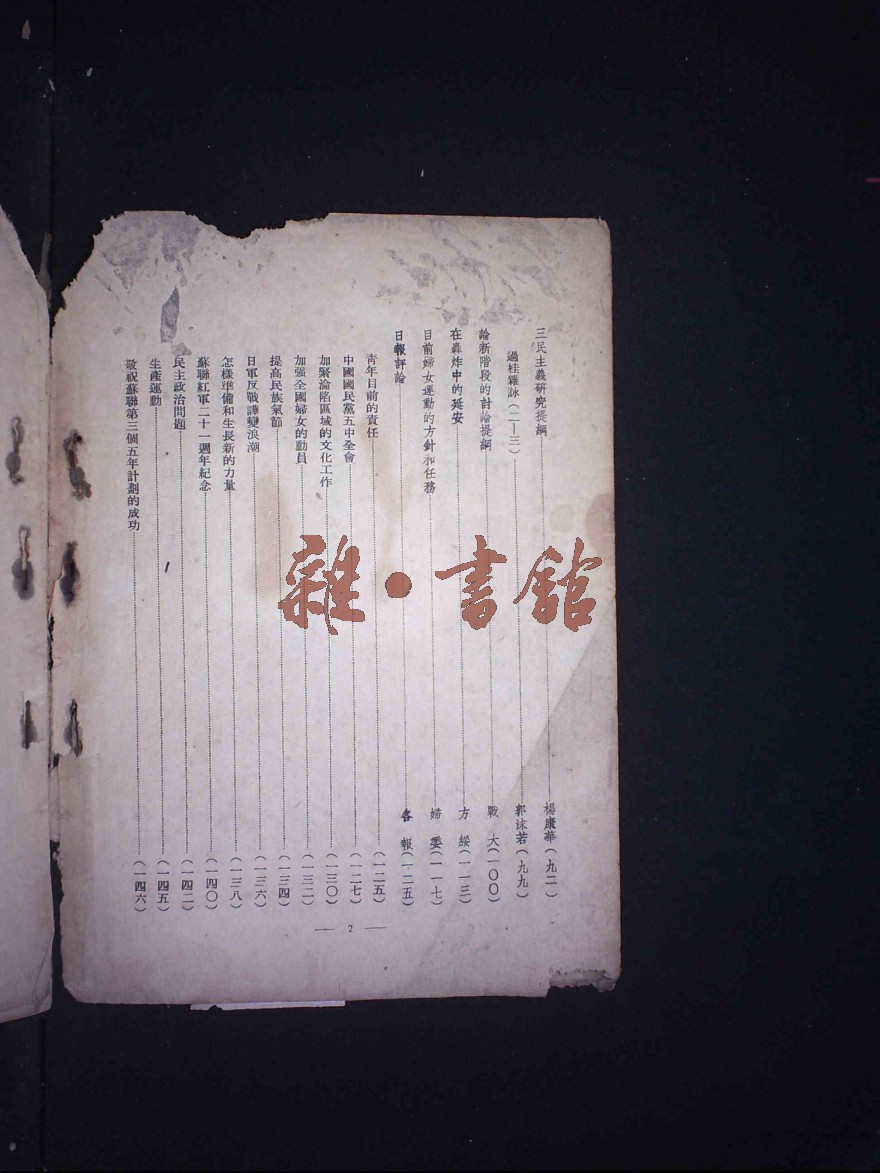 三民主義研究提綱……楊康華(九二)
過桂雜詠(二—三)……郭沫若(九九)
論新階段的討論提綱……戰 大(一〇〇)
在轟炸中的延安……方 綏(一一三)
目前婦女運動的方針和任務……婦 委(一一七)
日報評論……各 報(一二五)
靑年目前的責任……(一二五)
中國國民黨五中全會……(一二七)
加緊淪陷區域的文化工作……(一三〇)
加强全國婦女的動員……(一三二)
提高民族氣節……(一三四)
日軍反戰譁變浪潮……(一三六)
怎樣準備和生長新的力量……(一三八)
蘇聯紅軍二十一週年紀念……(一四〇)
民主政治問題……(一四二)
生產運動……(一四五)
敬祝蘇聯第三個五年計劃的成功……(一四六)
— 2 —
雜·書館